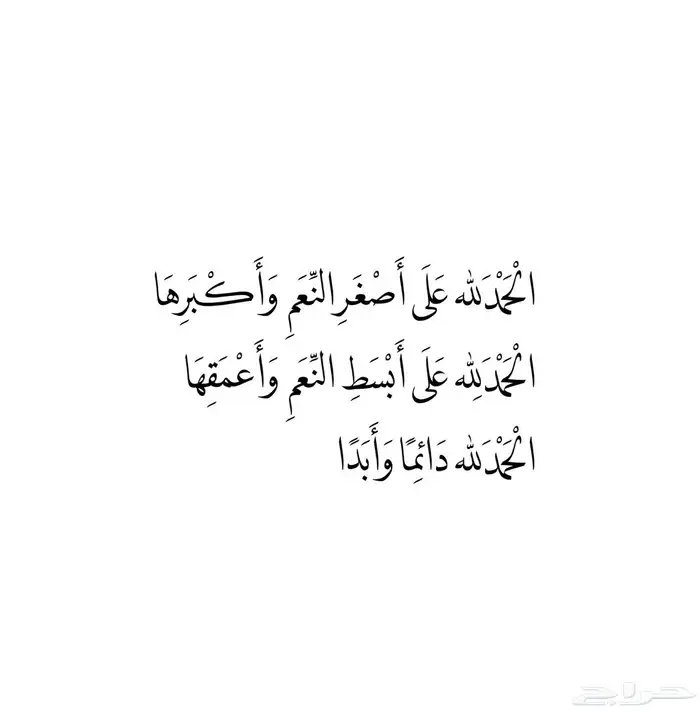 الْحَمْدَلله عَلَى أَصْغَرِ النِّعَمِ وَأَكْبَرِهَا
الْحَمْدَلِله عَلَى أَبْسَطِ النِّعَمِ وَأَعْمَقِهَا
الْحَمْدَلله دَائِمًا وَأَبَدًا
حراج